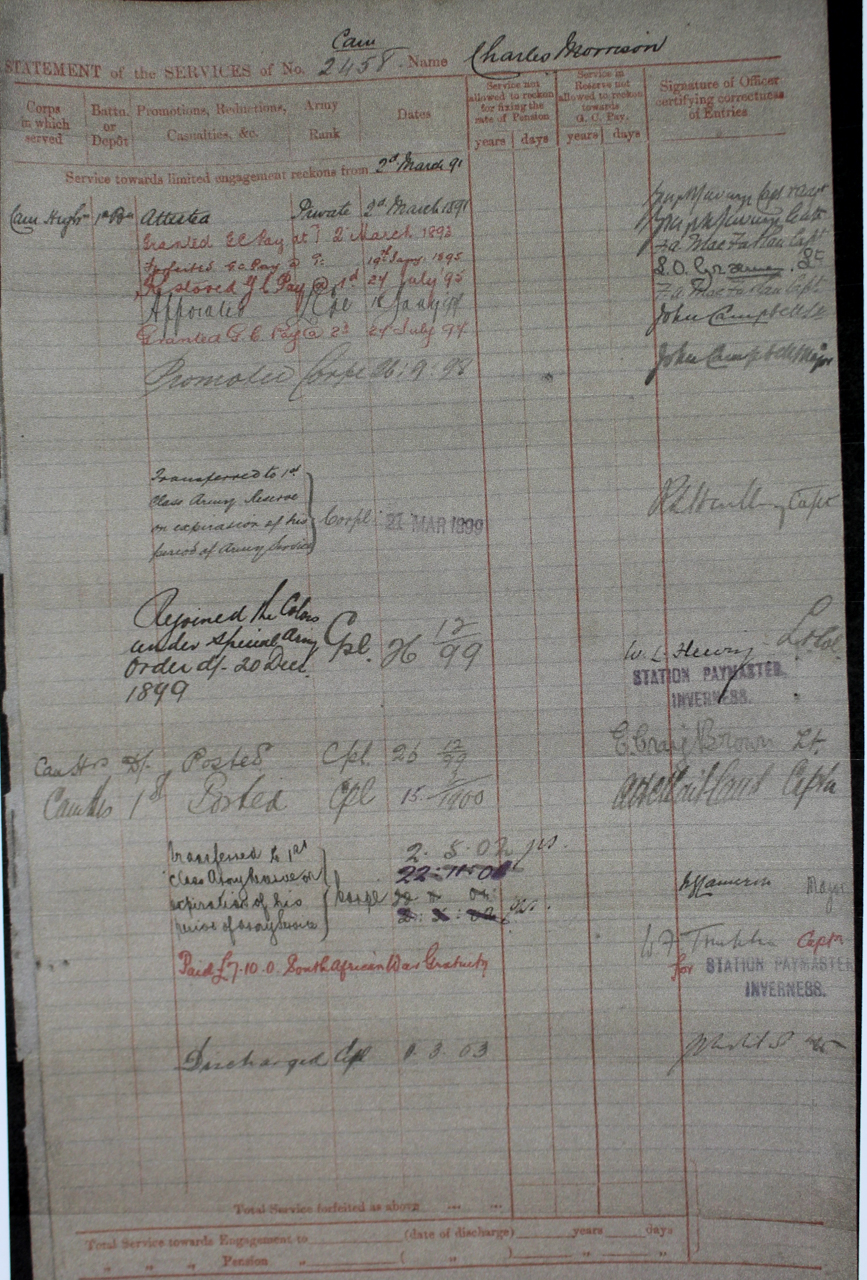 Cam
STATEMENT of the SERVICES of No. 2458 Name Charles Morrison
Corps in which served
Battn. or Depôt
Promotions, Reductions, Casualties, &c.
Army Rank
Dates
Service not allowed to reckon for fixing the rate of Pension
years days
Service in Reserve not allowed to reckon towards G. C. Pay.
years days
Signature of Officer certifying correctness of Entries
Service towards limited engagement reckons from 2d March 91
Cam. Highrs 1st Bn Attested Private 2d March 1891
Granted G C Pay at 1 2 March 1893
Forfeited G.C. Pay 1895
Restored G C Pay @ 1d 24 July 95 F. A. MacFarlan Capt
Appointed
Granted G. C Pay @ 2d 24 July John Campbell
Promoted Corpl 26:9:98 John Campbell Major
Transferred to 1st
Class Army Reserve
on expiration of his Corpl 21 MAR 1899 Capt
period of Army Service
Rejoined the Colors
under special Army Cpl. 26 12/99 Lt Col.
Order d/- 20 Dec. STATION PAYMASTER,
1899 INVERNESS.
Cam Hrs D/. Posted Cpl. 26 12/99 E. Craig Brown Lt.
Cam Hrs 1st Posted Cpl 15 /1900 Capt
transferred to 1st 2. 5. 02
class Army Reserve on
expiration of his Corpl Cameron Major
period of army service
Capt
Paid £7.10.0. South African War Gratuity for STATION PAYMASTER
INVERNESS.
Discharged Cpl 1. 3. 03
Total Service forfeited as above ... ...
Total Service towards Engagement to (date of discharge) years days
" " " Pension " ( " ) " "